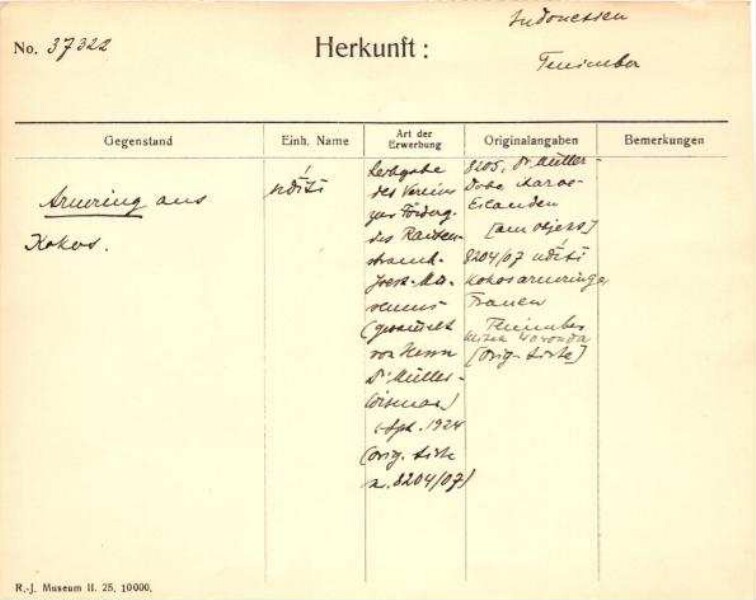 Indonesien
No. 37322
Herkunft:
Tenimber
Gegenstand
Einh. Name
Art der
Erwerbung
Originalangaben
Bemerkungen
Armring aus
Kokos.
ndíti
Leihgabe
des Vereins
zur Förderg.
des Rauten-
strauch-
Joest-Mu-
seums
(gesammelt
von Herrn
Dr. Müller-
Wismar)
Sept. 1924
(orig. Liste
n. 8204/07)
8205, Dr. Müller-
Dobo Aaroe-
Eilanden
[am Objekt]
8204/07 ndíti
Kokosarmringe
Frauen
Tenimber
[Orig. Liste]
R.-J. Museum II. 25. 10000.